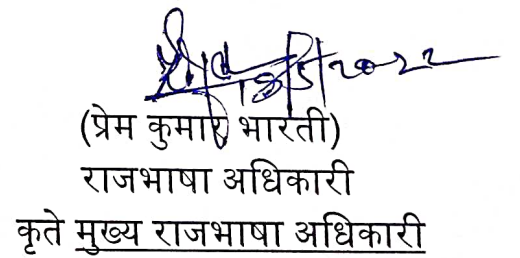 (प्रेम कुमार भारती)
राजभाषा अधिकारी
कृते मुख्य राजभाषा अधिकारी